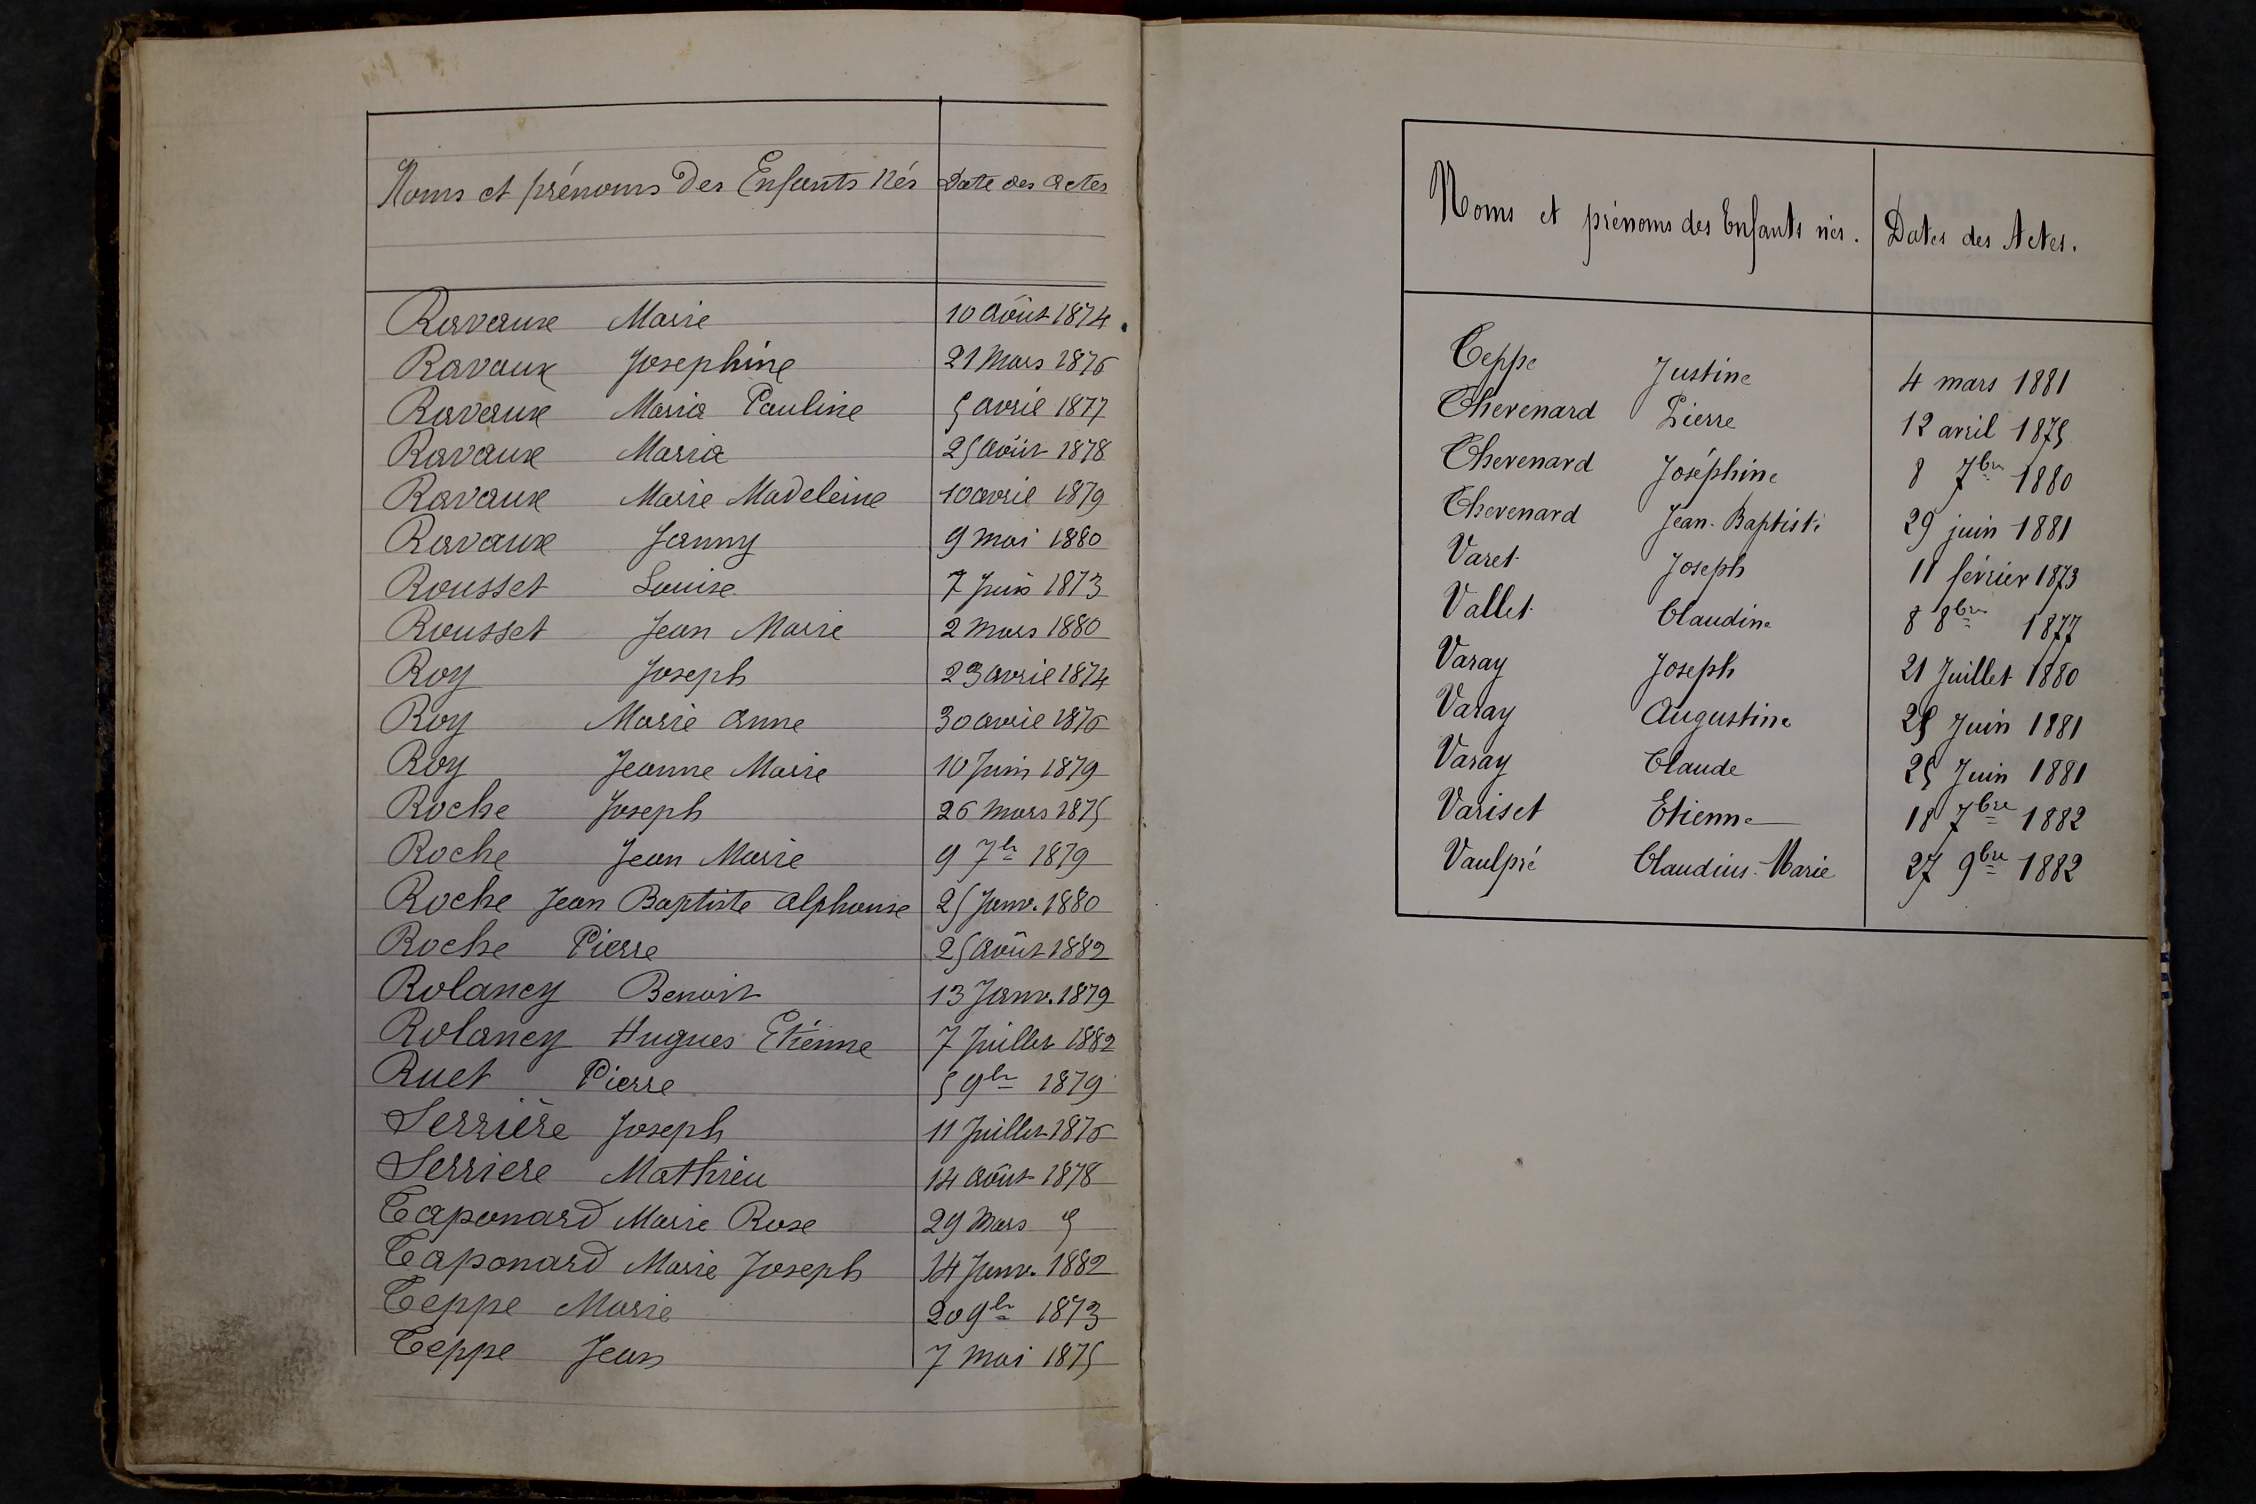 Noms et prénoms des Enfants Nés Date des actes
Ravaux Marie 10 Août 1874.
Ravaux Josephine 21 Mars 1876
Ravaux Maria Pauline 5 avril 1877
Ravaux Maria 25 Août 1878
Ravaux Marie Madeleine 10 avril 1879
Ravaux Janny 9 Mai 1880
Rousset Louise 7 Juin 1873
Rousset Jean Marie 2 Mars 1880
Roy Joseph 23 avril 1874
Roy Marie Anne 30 avril 1876
Roy Jeanne Marie 10 Juin 1879
Roche Joseph 26 Mars 1875
Roche Jean Marie 9 7br 1879
Roche Jean Baptiste Alphonse 25 Janv. 1880
Roche Pierre 25 Août 1882
Rolancy Benoit 13 Janv. 1879
Rolancy Hugues Etienne 7 Juillet 1882
Ruet Pierre 5 9br 1879
Serrière Joseph 11 Juillet 1876
Serriere Mathieu 14 Août 1878
Taponard Marie Rose 29 Mars 9
Taponard Marie Joseph 14 Janv. 1882
Teppe Marie 20 9br 1873
Teppe Jean 7 Mai 1875
Noms et prénoms des Enfants nés. Dates des Actes.
Teppe Justine 4 mars 1881
Thevenard Pierre 12 avril 1875
Thevenard Joséphine 8 7bre 1880
Thevenard Jean-Baptiste 29 juin 1881
Varet Joseph 11 février 1873
Vallet Claudine 8 8bre 1877
Varay Joseph 21 Juillet 1880
Varay Augustine 25 Juin 1881
Varay Claude 25 Juin 1881
Variset Etienne 18 7bre 1882
Vaulpré Claudius-Marie 27 9bre 1882